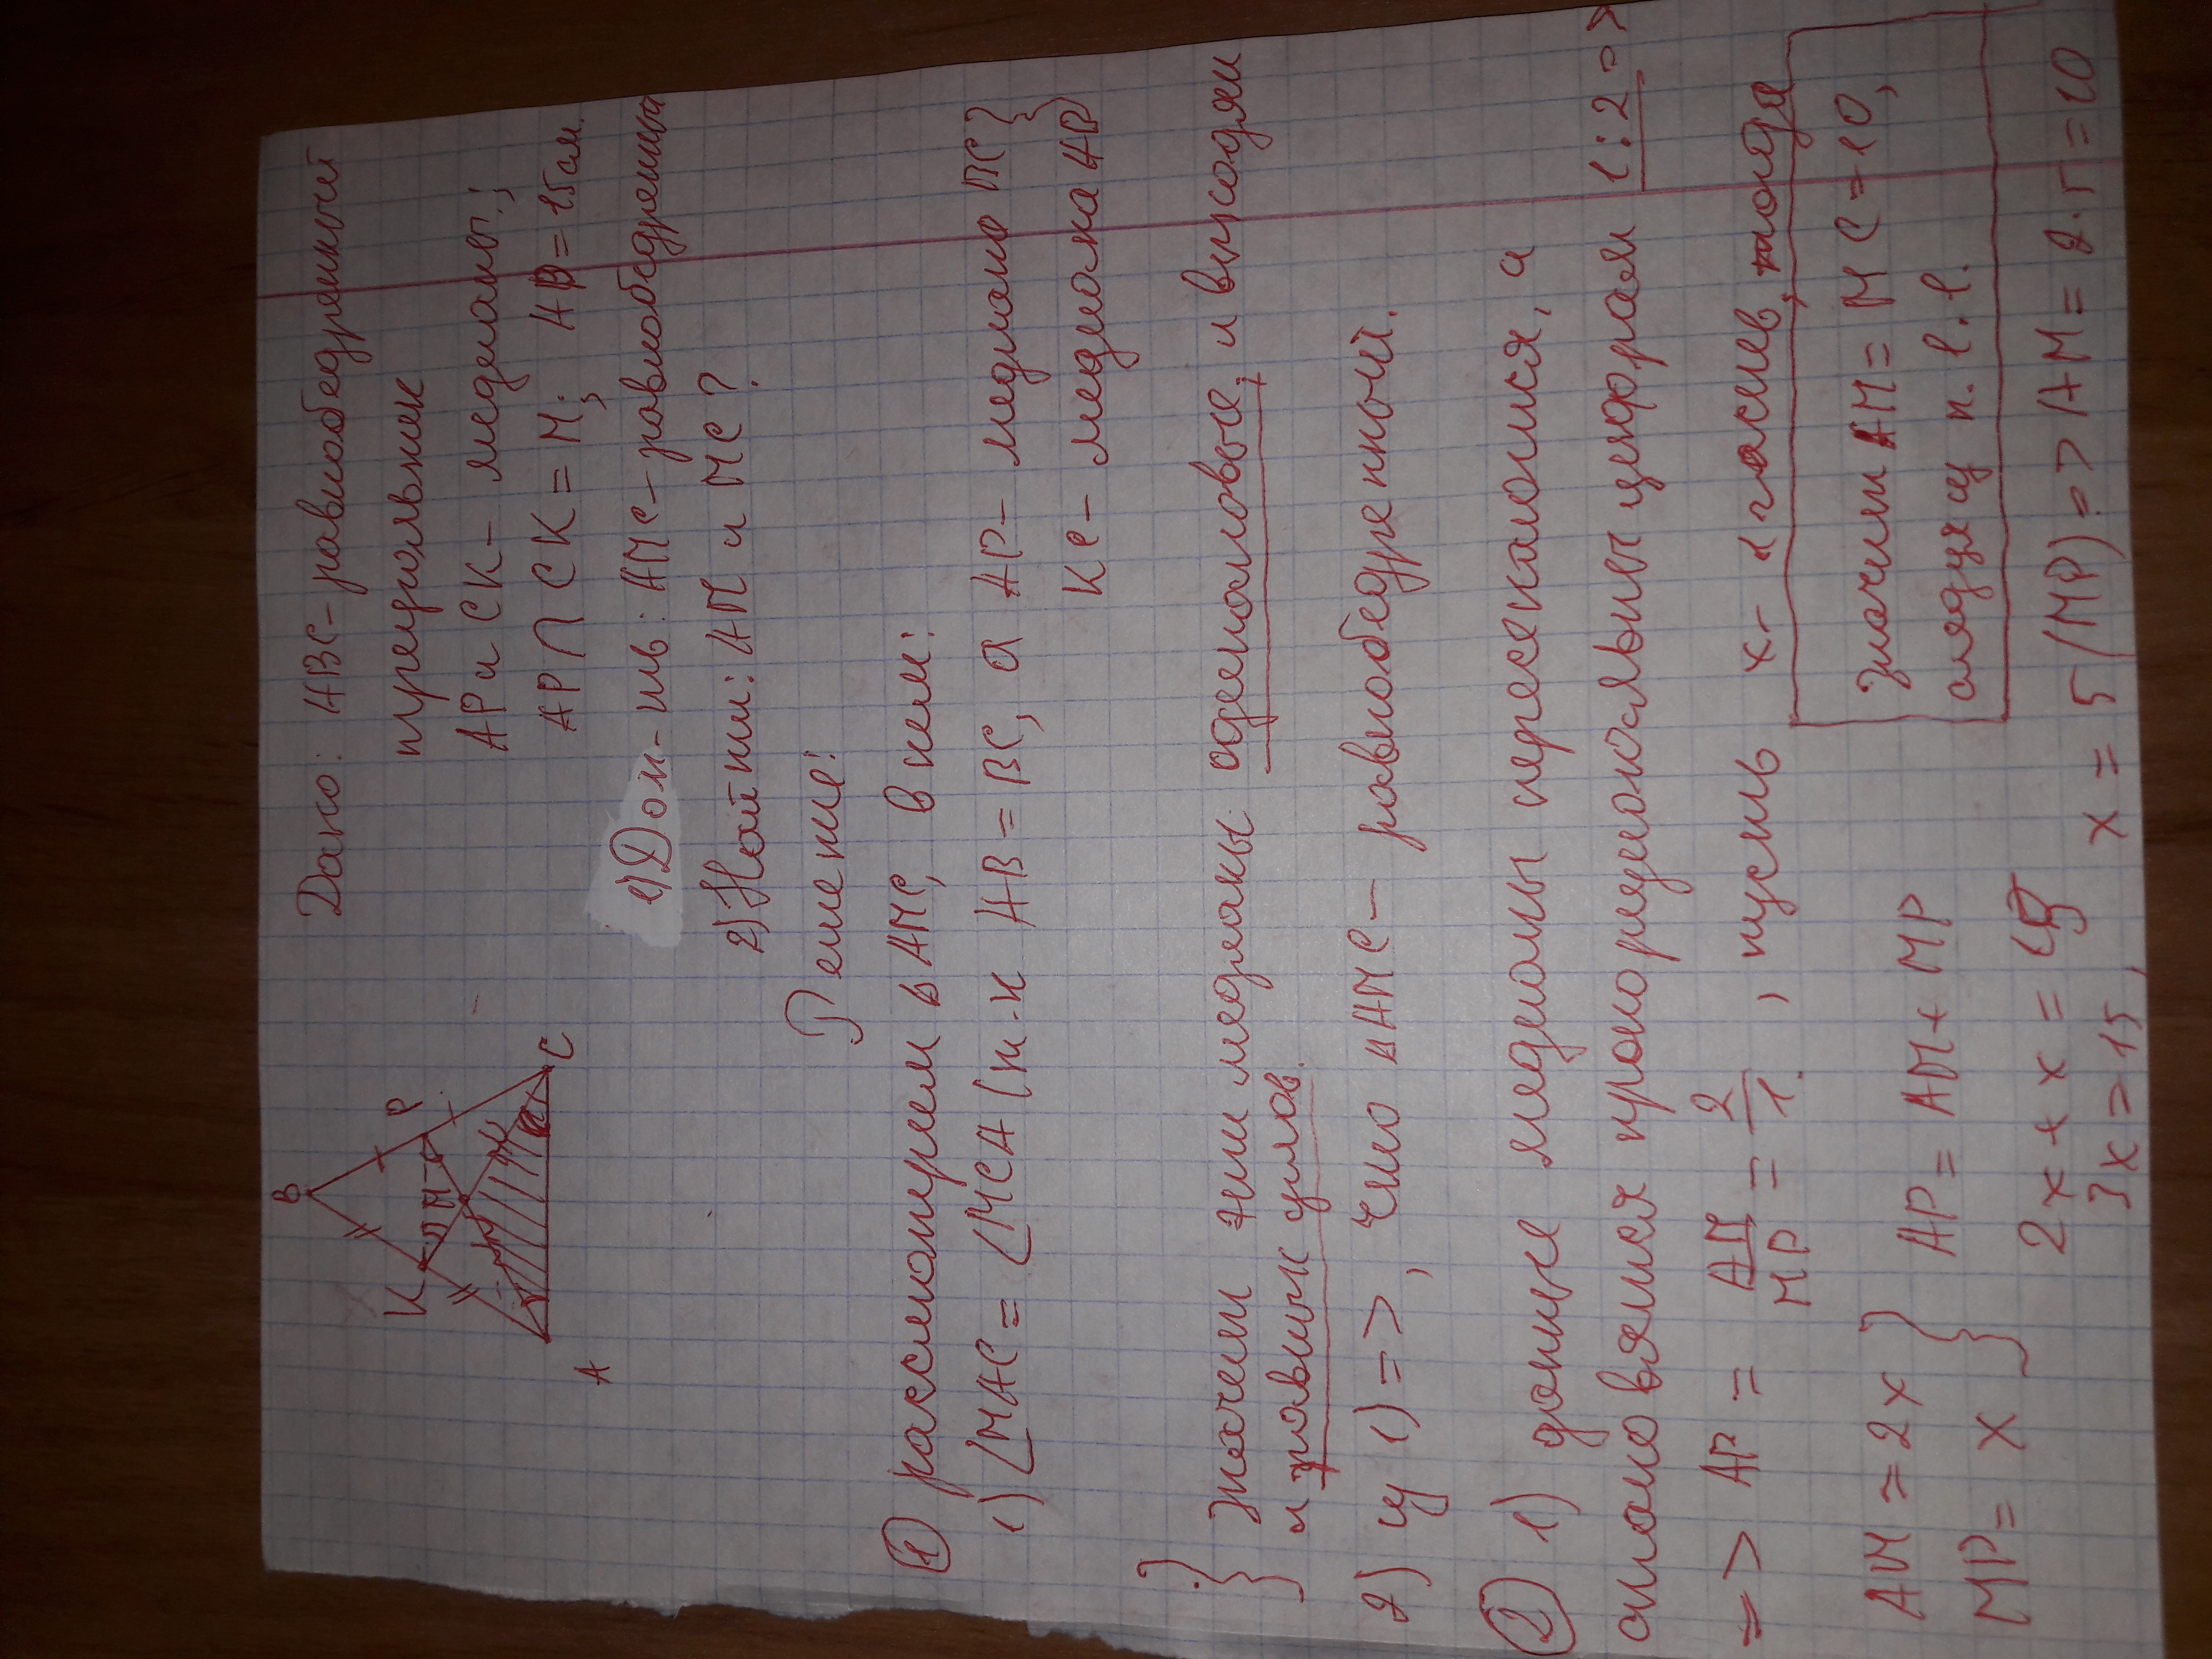 Дано: ABC - равнобедренный
треугольник
AP и CK - медианы;
AP ∩ CK = M; AP = 15 см.
1) Док-ть: AMC - равнобедренный
2) Найти: AM и MC?
B
K
P
M
A
C
Решение:
① рассмотрим △ AMC, в нём:
1) ∠MAC = ∠MCA (т.к AB = BC, а AP - медиана BC}
KC - медиана AB
} Значит эти медианы одинаковые, и выходят
и равных углов.
2) из 1) => , что △AMC - равнобедренный.
② 1) данные медианы пересекаются, а
становятся пропорциональны цифрам 1:2 =>
=> AP = AM/MP = 2/1. , пусть x - 1 часть, тогда
AM = 2x }
MP = x }
AP = AM + MP
2x + x = 15
3x = 15,
x = 5 (MP) => AM = 2·5 = 10
Значит AM = MC = 10,
следует из п. 1.